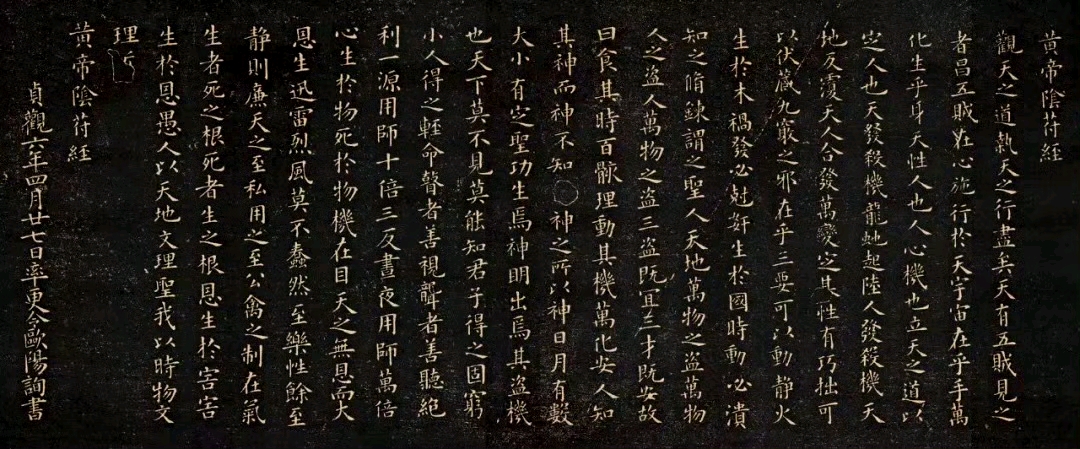 黄帝陰苻經
觀天之道執天之行盡矣天有五賊見之
者昌五賊在心施行於天宇宙在乎手萬
化生乎身天性人也人心機也立天之道以
定人也天發殺機龍虵起陸人發殺機天
地反覆天人合發萬變定其性有巧拙可
以伏藏九竅之邪在乎三要可以動静火
生於木禍發必尅奸生於國時動必潰
知之脩鍊謂之聖人天地萬物之盗萬物
人之盗人萬物之盗三盗既冝三才既安故
曰食其時百骸理動其機萬化安人知
其神而神不知神之所以神日月有數
大小有定聖功生焉神明出焉其盗機
也天下莫不見莫能知君子得之固窮
小人得之輕命瞽者善視聾者善聽絶
利一源用師十倍三反晝夜用師萬倍
心生於物死於物機在目天之無恩而大
恩生迅雷烈風莫不蠢然至樂性餘至
静則廉天之至私用之至公禽之制在氣
生者死之根死者生之根恩生於害害
生於恩愚人以天地文理聖我以時物文
理哲
黄帝陰苻經
貞觀六年四月廿七日率更令歐陽詢書